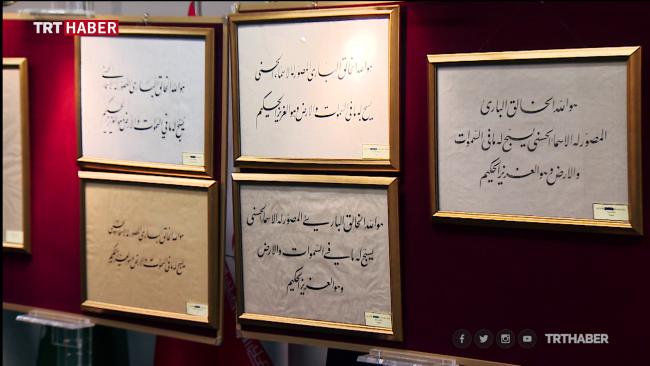 TRT HABER
هو الله الخالق الباری المصور له الاسماء الحسنی
یسبح له ما فی السموات والارض وهو العزیز الحکیم
هو الله الخالق الباری المصور له الاسماء الحسنی
یسبح له ما فی السموات والارض وهو العزیز الحکیم
هو الله الخالق الباری المصور له الاسماء الحسنی
یسبح له ما فی السموات والارض وهو العزیز الحکیم
هو الله الخالق الباری المصور له الاسماء الحسنی
یسبح له ما فی السموات والارض
وهو العزیز الحکیم
هو الله الخالق الباری
المصور له الاسماء الحسنی یسبح له ما فی السموات
والارض وهو العزیز الحکیم
TRTHABER